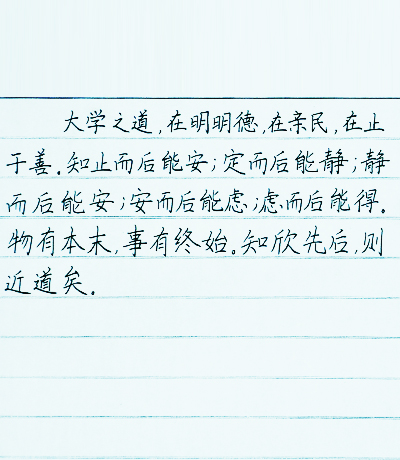 大学之道,在明明德,在亲民,在止
于善.知止而后能安;定而后能静;静
而后能安;安而后能虑;虑而后能得.
物有本末,事有终始。知欣先后,则
近道矣.